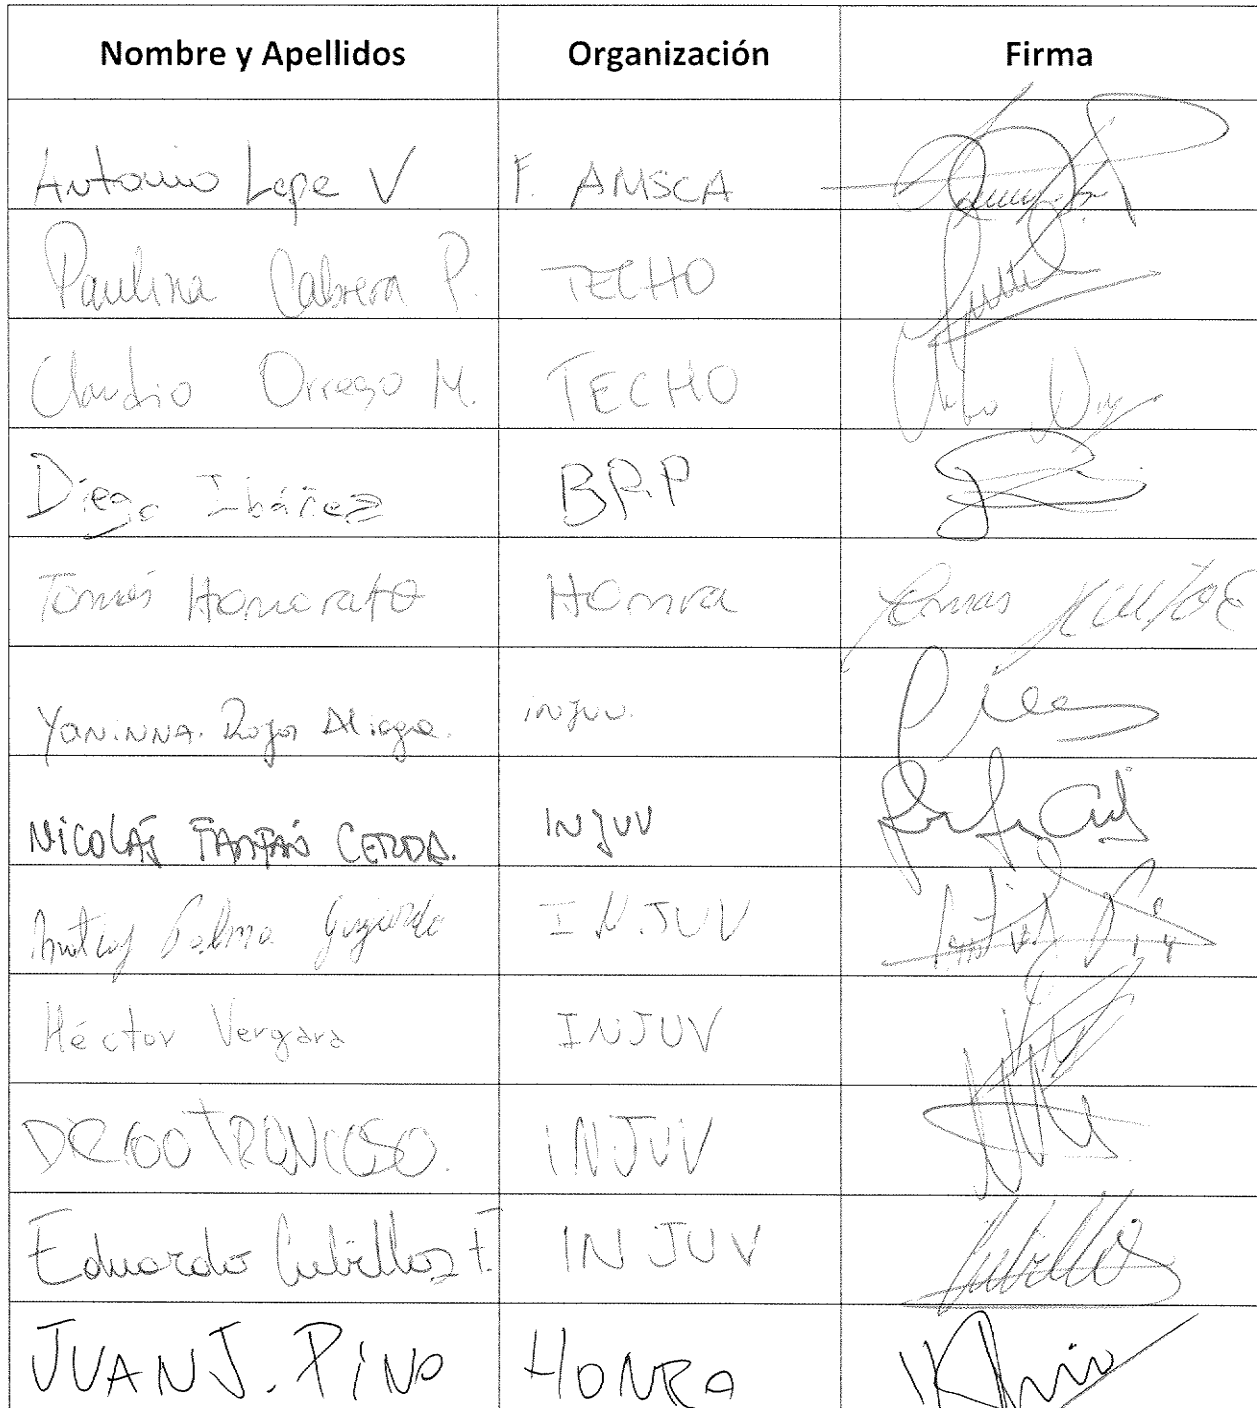 Nombre y Apellidos Organización Firma
Antonio Lope V F. AMSCA
Paulina Cabrera P. TECHO
Claudio Orrego M. TECHO
Diego Ibáñez BRP
Tomás Honorato Honra
Yaninna. Rojas Aliaga. injuv.
Nicolás Farfán Cerda. INJUV
Palma I.N.JUV
Héctor Vergara INJUV
DIEGO TRONCOSO. INJUV
Eduardo Cubillos F. INJUV
JUAN J. PINO HONRA